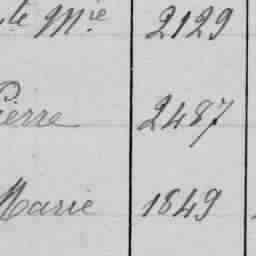 te Mie 2129
Pierre 2487
Marie 1849